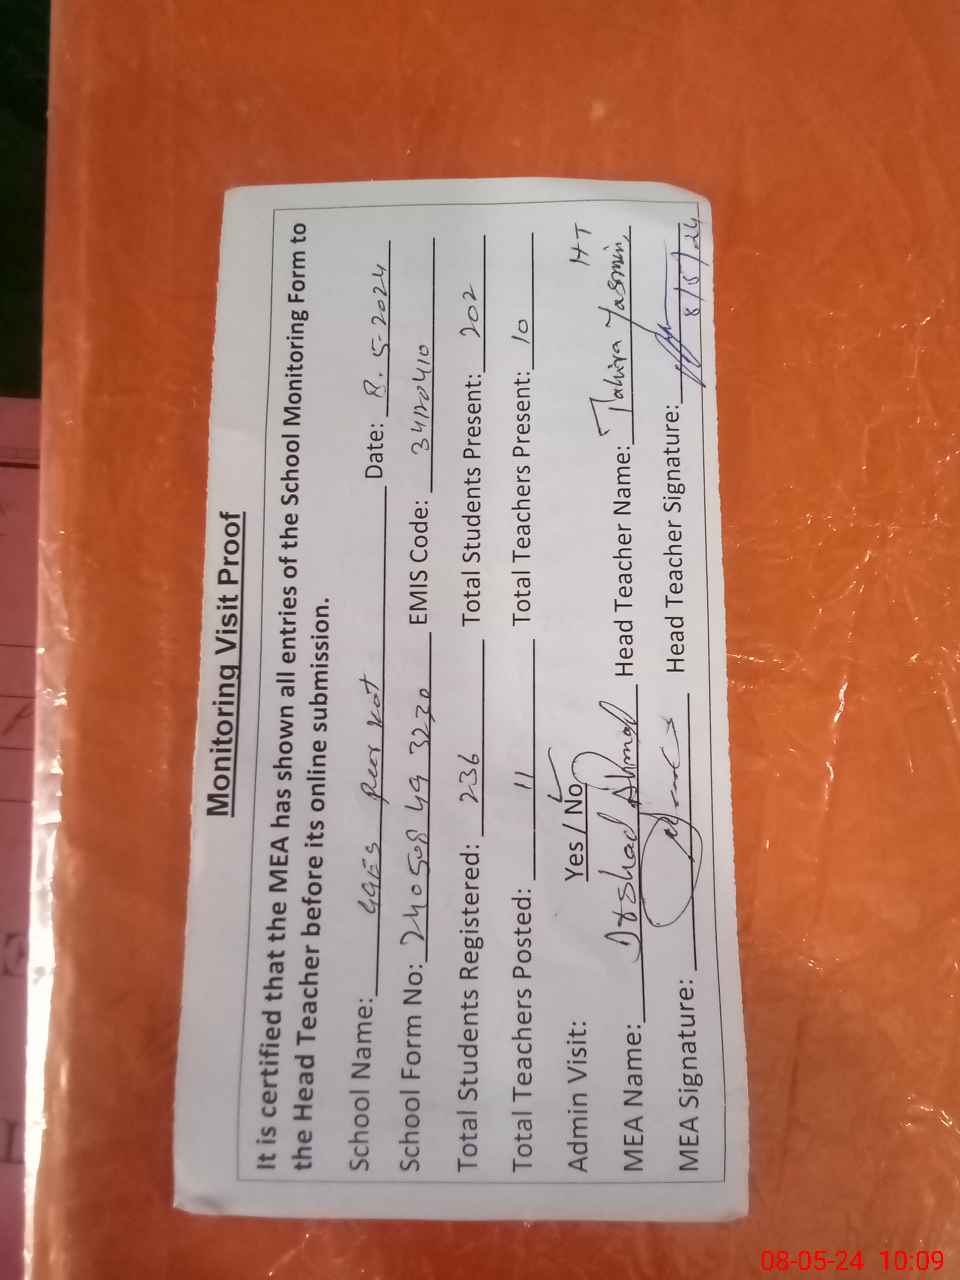 Monitoring Visit Proof
It is certified that the MEA has shown all entries of the School Monitoring Form to
the Head Teacher before its online submission.
School Name: GGES Peer Kot Date: 8.5-2024
School Form No: 240508 49 3230 EMIS Code: 34120410
Total Students Registered: 236 Total Students Present: 202
Total Teachers Posted: 11 Total Teachers Present: 10
Admin Visit: Yes / No H-T
MEA Name: Irshad Ahmad Head Teacher Name: Tahira Yasmin
MEA Signature: Head Teacher Signature:
8/5/24
08-05-24 10:09